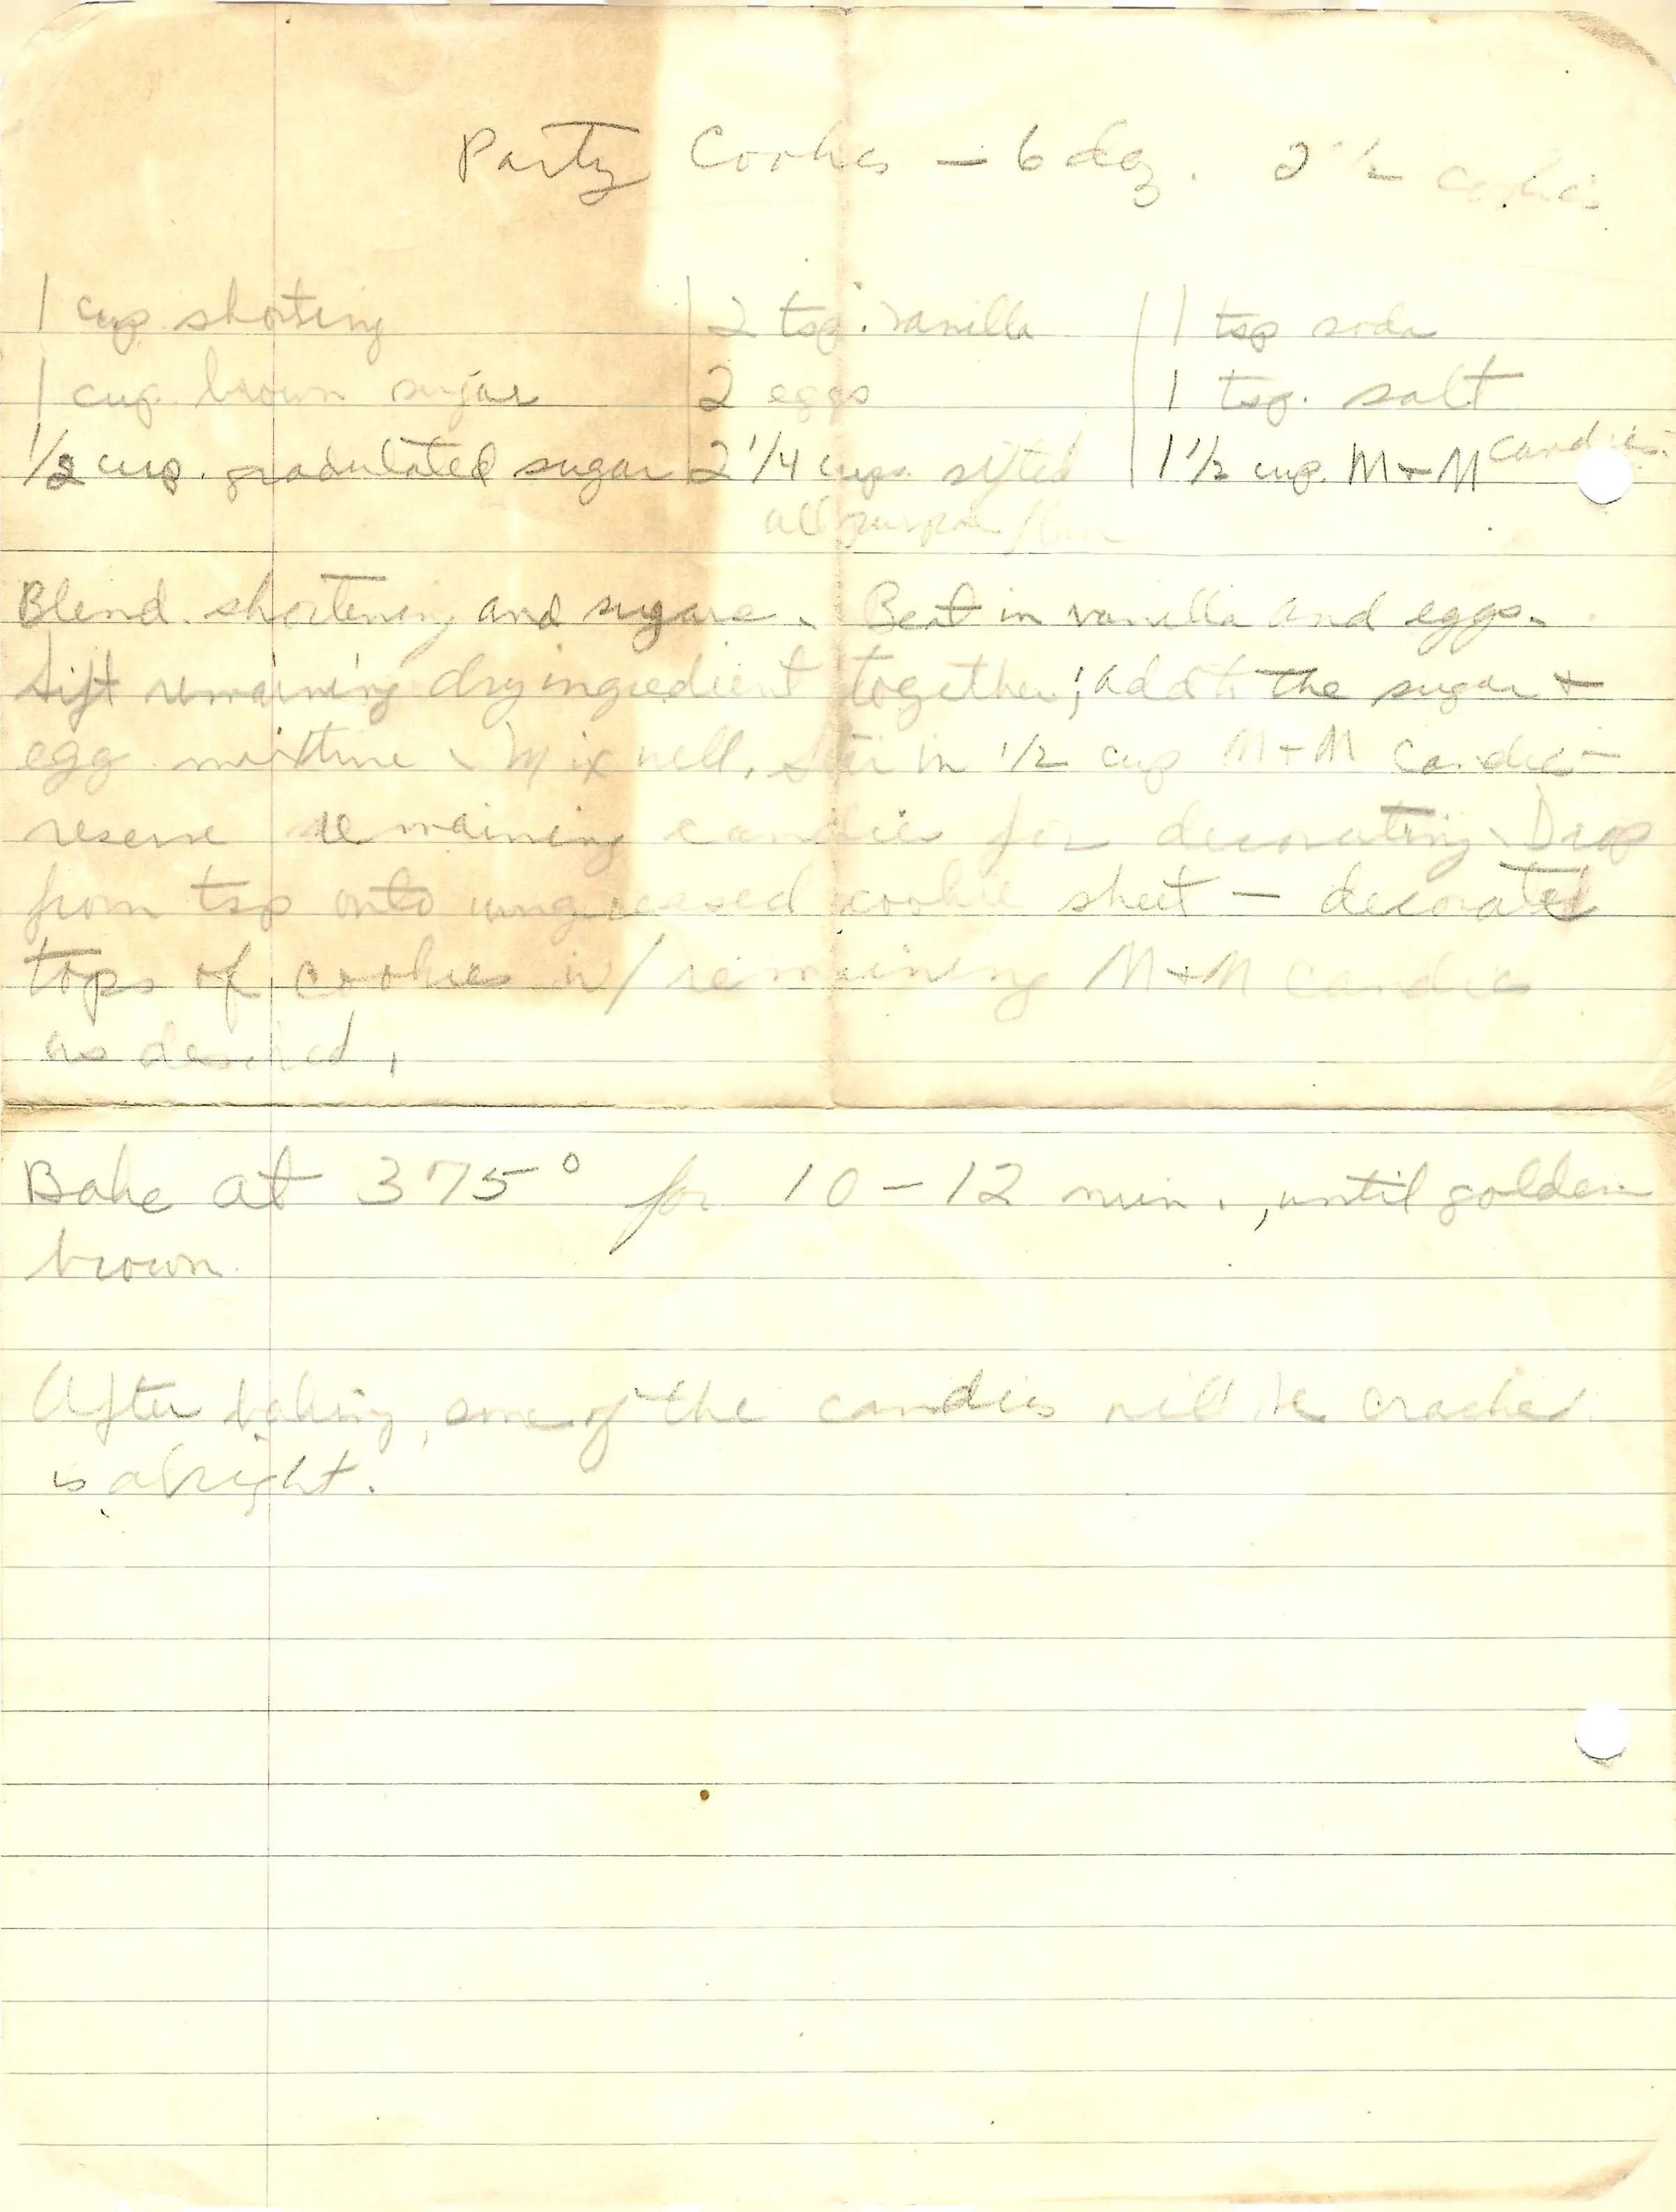 Party Cookies — 6 doz. 2 1/2 cookies
1 cup shorting | 2 tsp. vanilla | 1 tsp soda
1 cup brown sugar | 2 eggs | 1 tsp. salt
1/2 cup. gradulated sugar | 2 1/4 cups sifted | 1 1/2 cup. M+M candies
all purpose flour
Blend shortening and sugars. Beat in vanilla and eggs.
Sift remaining dry ingredient together; add to the sugar +
egg mixture. Mix well. Stir in 1/2 cup M+M candies —
reserve remaining candies for decorating. Drop
from tsp onto ungreased cookie sheet — decorated
tops of cookies w/ remaining M+M candies
as desired.
Bake at 375° for 10 - 12 min., until golden
brown.
After baking, some of the candies will be cracked
is alright.